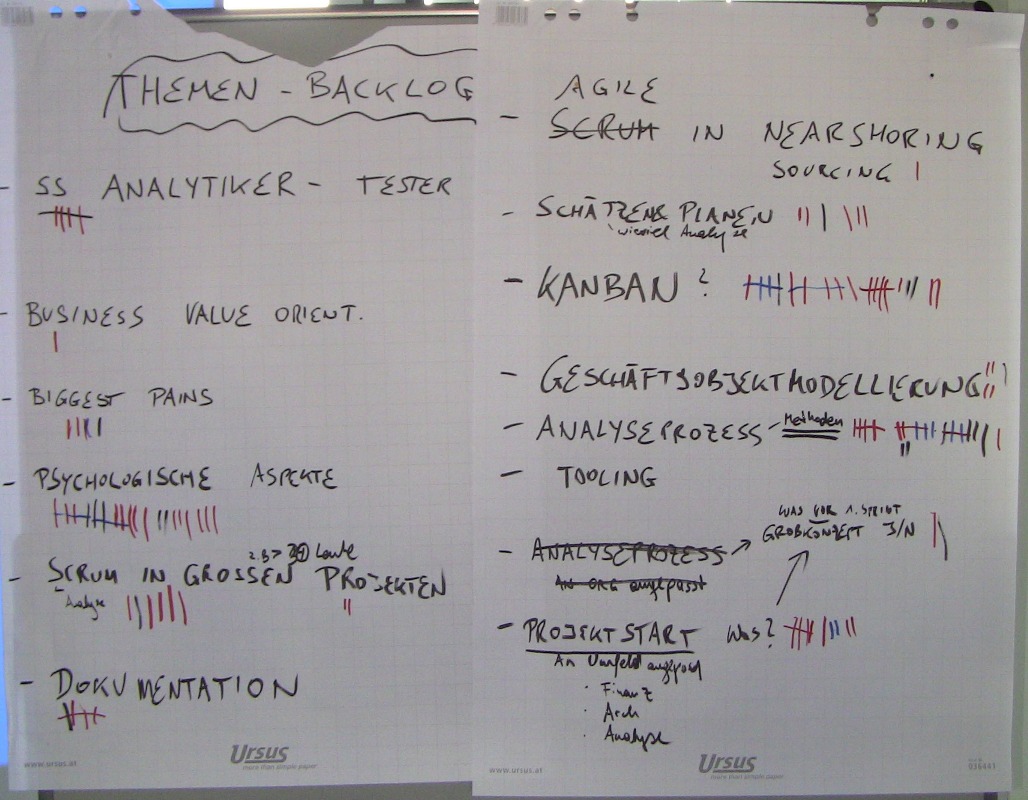 THEMEN - BACKLOG
- SS ANALYTIKER - TESTER
- BUSINESS VALUE ORIENT.
- BIGGEST PAINS
- PSYCHOLOGISCHE ASPEKTE
z.B > Leute
- SCRUM IN GROSSEN PROJEKTEN
Analyse
- DOKUMENTATION
www.ursus.at
Ursus
more than simple paper
AGILE
- SCRUM IN NEARSHORING
SOURCING
- SCHÄTZEN & PLANEN
wieviel Analyse
- KANBAN ?
- GESCHÄFTSOBJEKTMODELLIERUNG
- ANALYSEPROZESS - Methoden
- TOOLING
WAS VOR 1. SPRINT
GROBKONZEPT J/N
- ANALYSEPROZESS
AN ORG angepasst
- PROJEKTSTART Was?
An Umfeld angepasst
· Finanz
· Arch
· Analyse
www.ursus.at
Ursus
more than simple paper